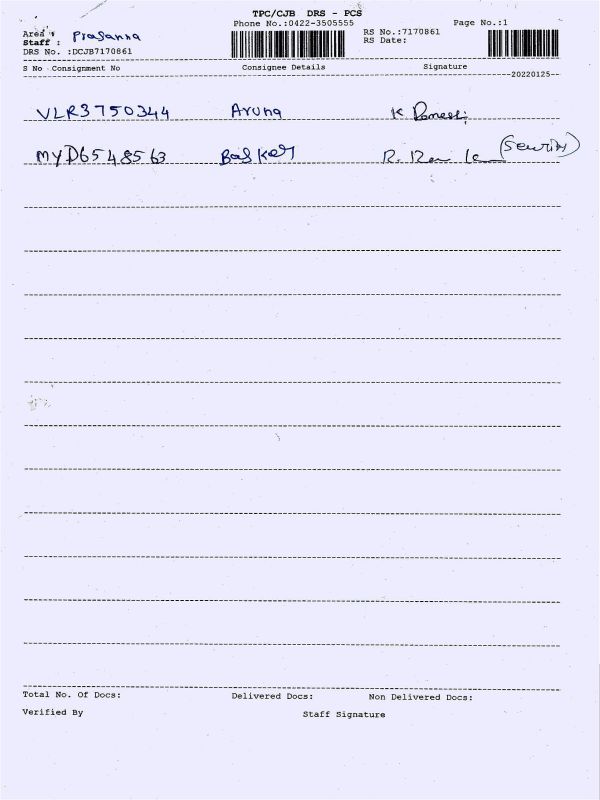 TPC/CJB DRS - PCS
Phone No.:0422-3505555 Page No.:1
Area : Prasanna RS No.:7170861
Staff : RS Date:
DRS No. :DCJB7170861
S No Consignment No Consignee Details Signature
20220125
VLR3750344 Aruna K
MYD6548563 Baskar R.
Total No. Of Docs: Delivered Docs: Non Delivered Docs:
Verified By Staff Signature